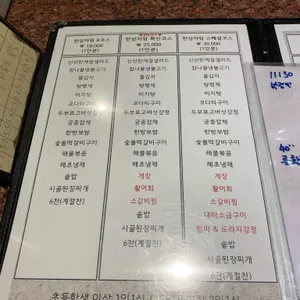 한상차림 포유스 한상차림 특선코스 한상차림 스페셜코스
₩ 18,000 ₩ 25,000 ₩ 30,000
(1인분) (1인분) (1인분)
신선한계절샐러드 신선한계절샐러드 신선한계절샐러드
참나물냉불고기 참나물냉불고기 참나물냉불고기
물김치 물김치 물김치
탕평채 탕평채 탕평채
비지탕 비지탕 비지탕
코다리구이 코다리구이 코다리구이
두부표고버섯강정 두부표고버섯강정 두부표고버섯강정
궁중잡채 궁중잡채 궁중잡채
한방보쌈 한방보쌈 한방보쌈
숯불떡갈비구이 숯불떡갈비구이 숯불떡갈비구이
해물볶음 해물볶음 해물볶음
해초냉채 해초냉채 해초냉채
솥밥 게장 게장
시골된장찌개 활어회 활어회
6찬(계절찬) 소갈비찜 소갈비찜
솥밥 대하소금구이
시골된장찌개 홍마 & 도라지강정
6찬(계절찬) 솥밥
시골된장찌개
6찬(계절찬)
초등학생 이상 1인1식
11:30